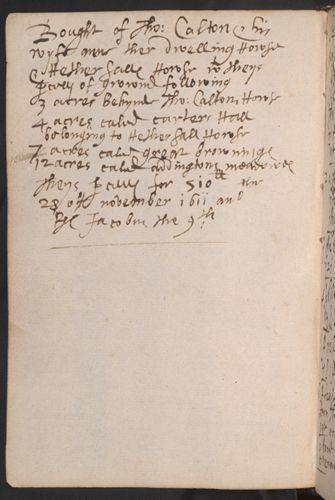 Bought of Tho: Calton & his
wyf ann ther dwelling Howse
& Hether fall Howse wth theys
pcells of ground following
3 acres behynd Tho: Calton Howse
4 acres caled carter Hall
belonging to Hether fall Howse
7 acres caled great brownings
12 acres caled addingtons meadowe
theys I all for 510ll the
28 oft november 1611 and
Rs Jacobus the 9th